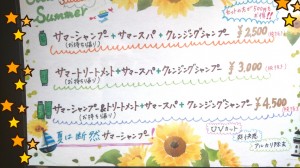 Summer
サマーシャンプー + サマースパ + クレンジングシャンプー ¥2,500
(お持ち帰り)
サマートリートメント + サマースパ + クレンジングシャンプー ¥3,000
(お持ち帰り)
サマーシャンプー&トリートメント + サマースパ + クレンジングシャンプー ¥4,500
(お持ち帰り)
夏は断然サマーシャンプー!
UVカット